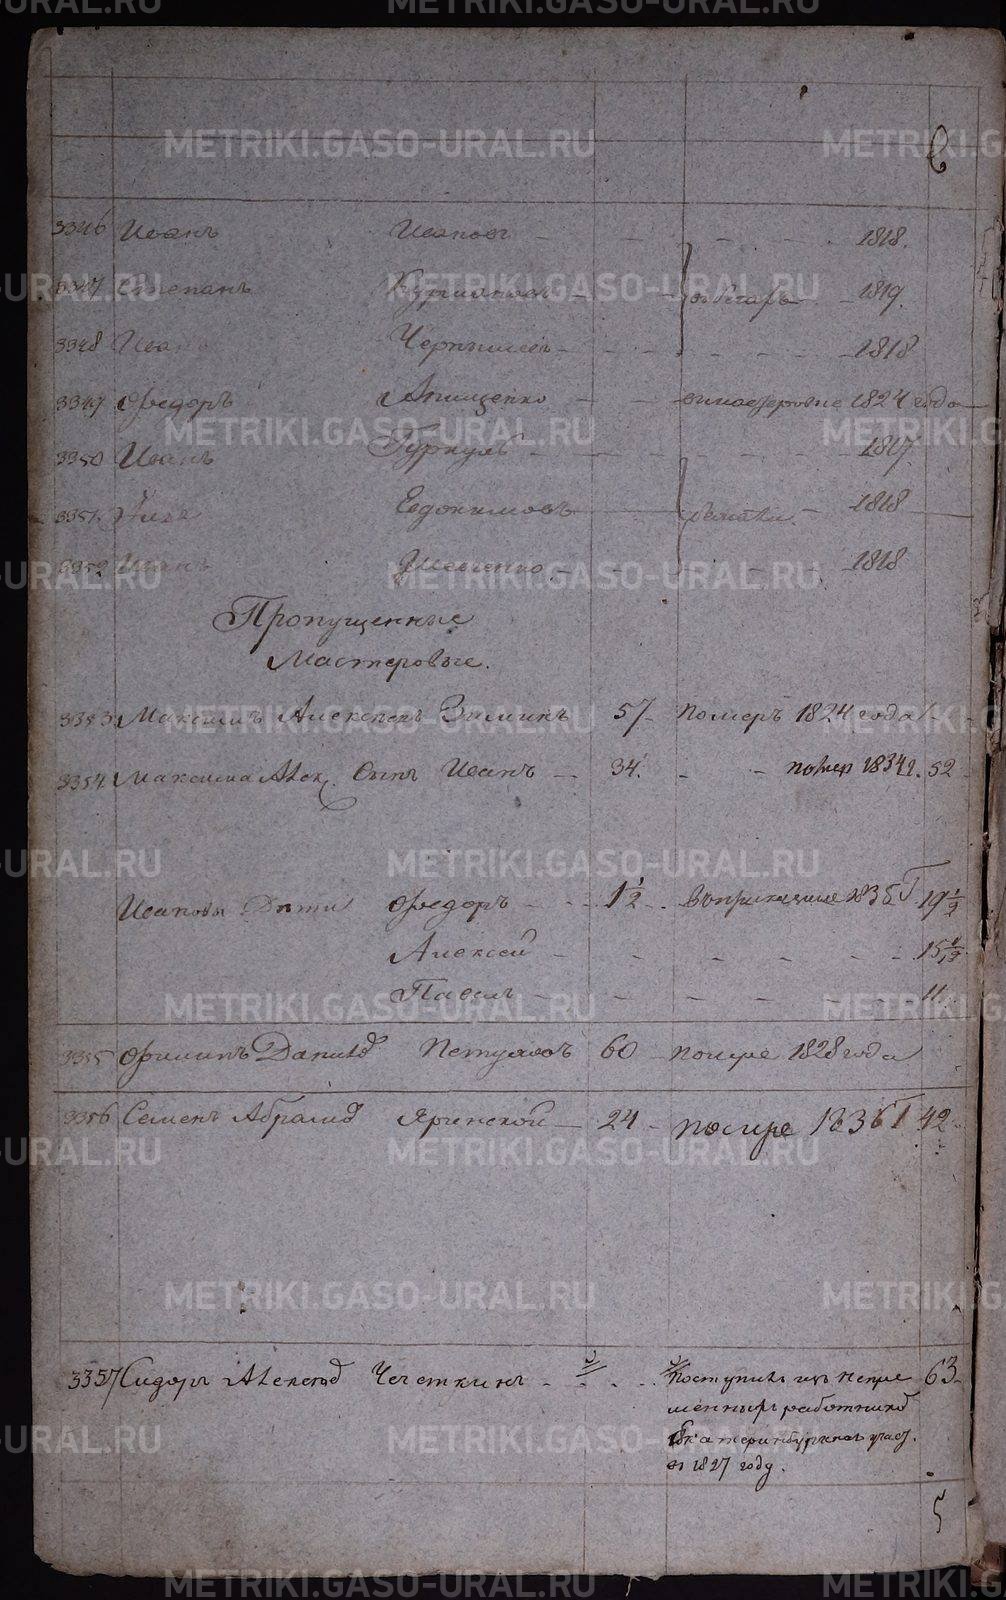 3346 Иванъ Ивановъ - - - - 1818.
3347 Степанъ - - 1819.
3348 Иванъ Чернышевъ - - - 1818
3349 Федоръ Анищенко - - 1824 года
3350 Иванъ Гуркулъ - - - 1817
3351 Илья Евдокимовъ 1818
3352 Иванъ Шевченко - - - 1818
Пропущенные
Мастеровые.
3353 Максимъ Алексеевъ Зиминъ 57 - Померъ 1824 года
3354 Максима Алек. Сынъ Иванъ - 34. - - помер 1834 г. 52
Ивановы Дѣти Федоръ - - 1½ - 1835 Г 19½
Алексей - - - - - 15½
Павелъ - - - - - 11.
3355 Филипъ Данилов Петуховъ 60 - помре 1828 года
3356 Семенъ Абрамов Яринской - 24 - помре 1836 Г 42
3357 Сидоръ Алексеев Чечеткинъ - - - Поступилъ изъ непре 63
менныхъ работников
Екатеринбурскихъ
въ 1827 году.
METRIKI.GASO-URAL.RU